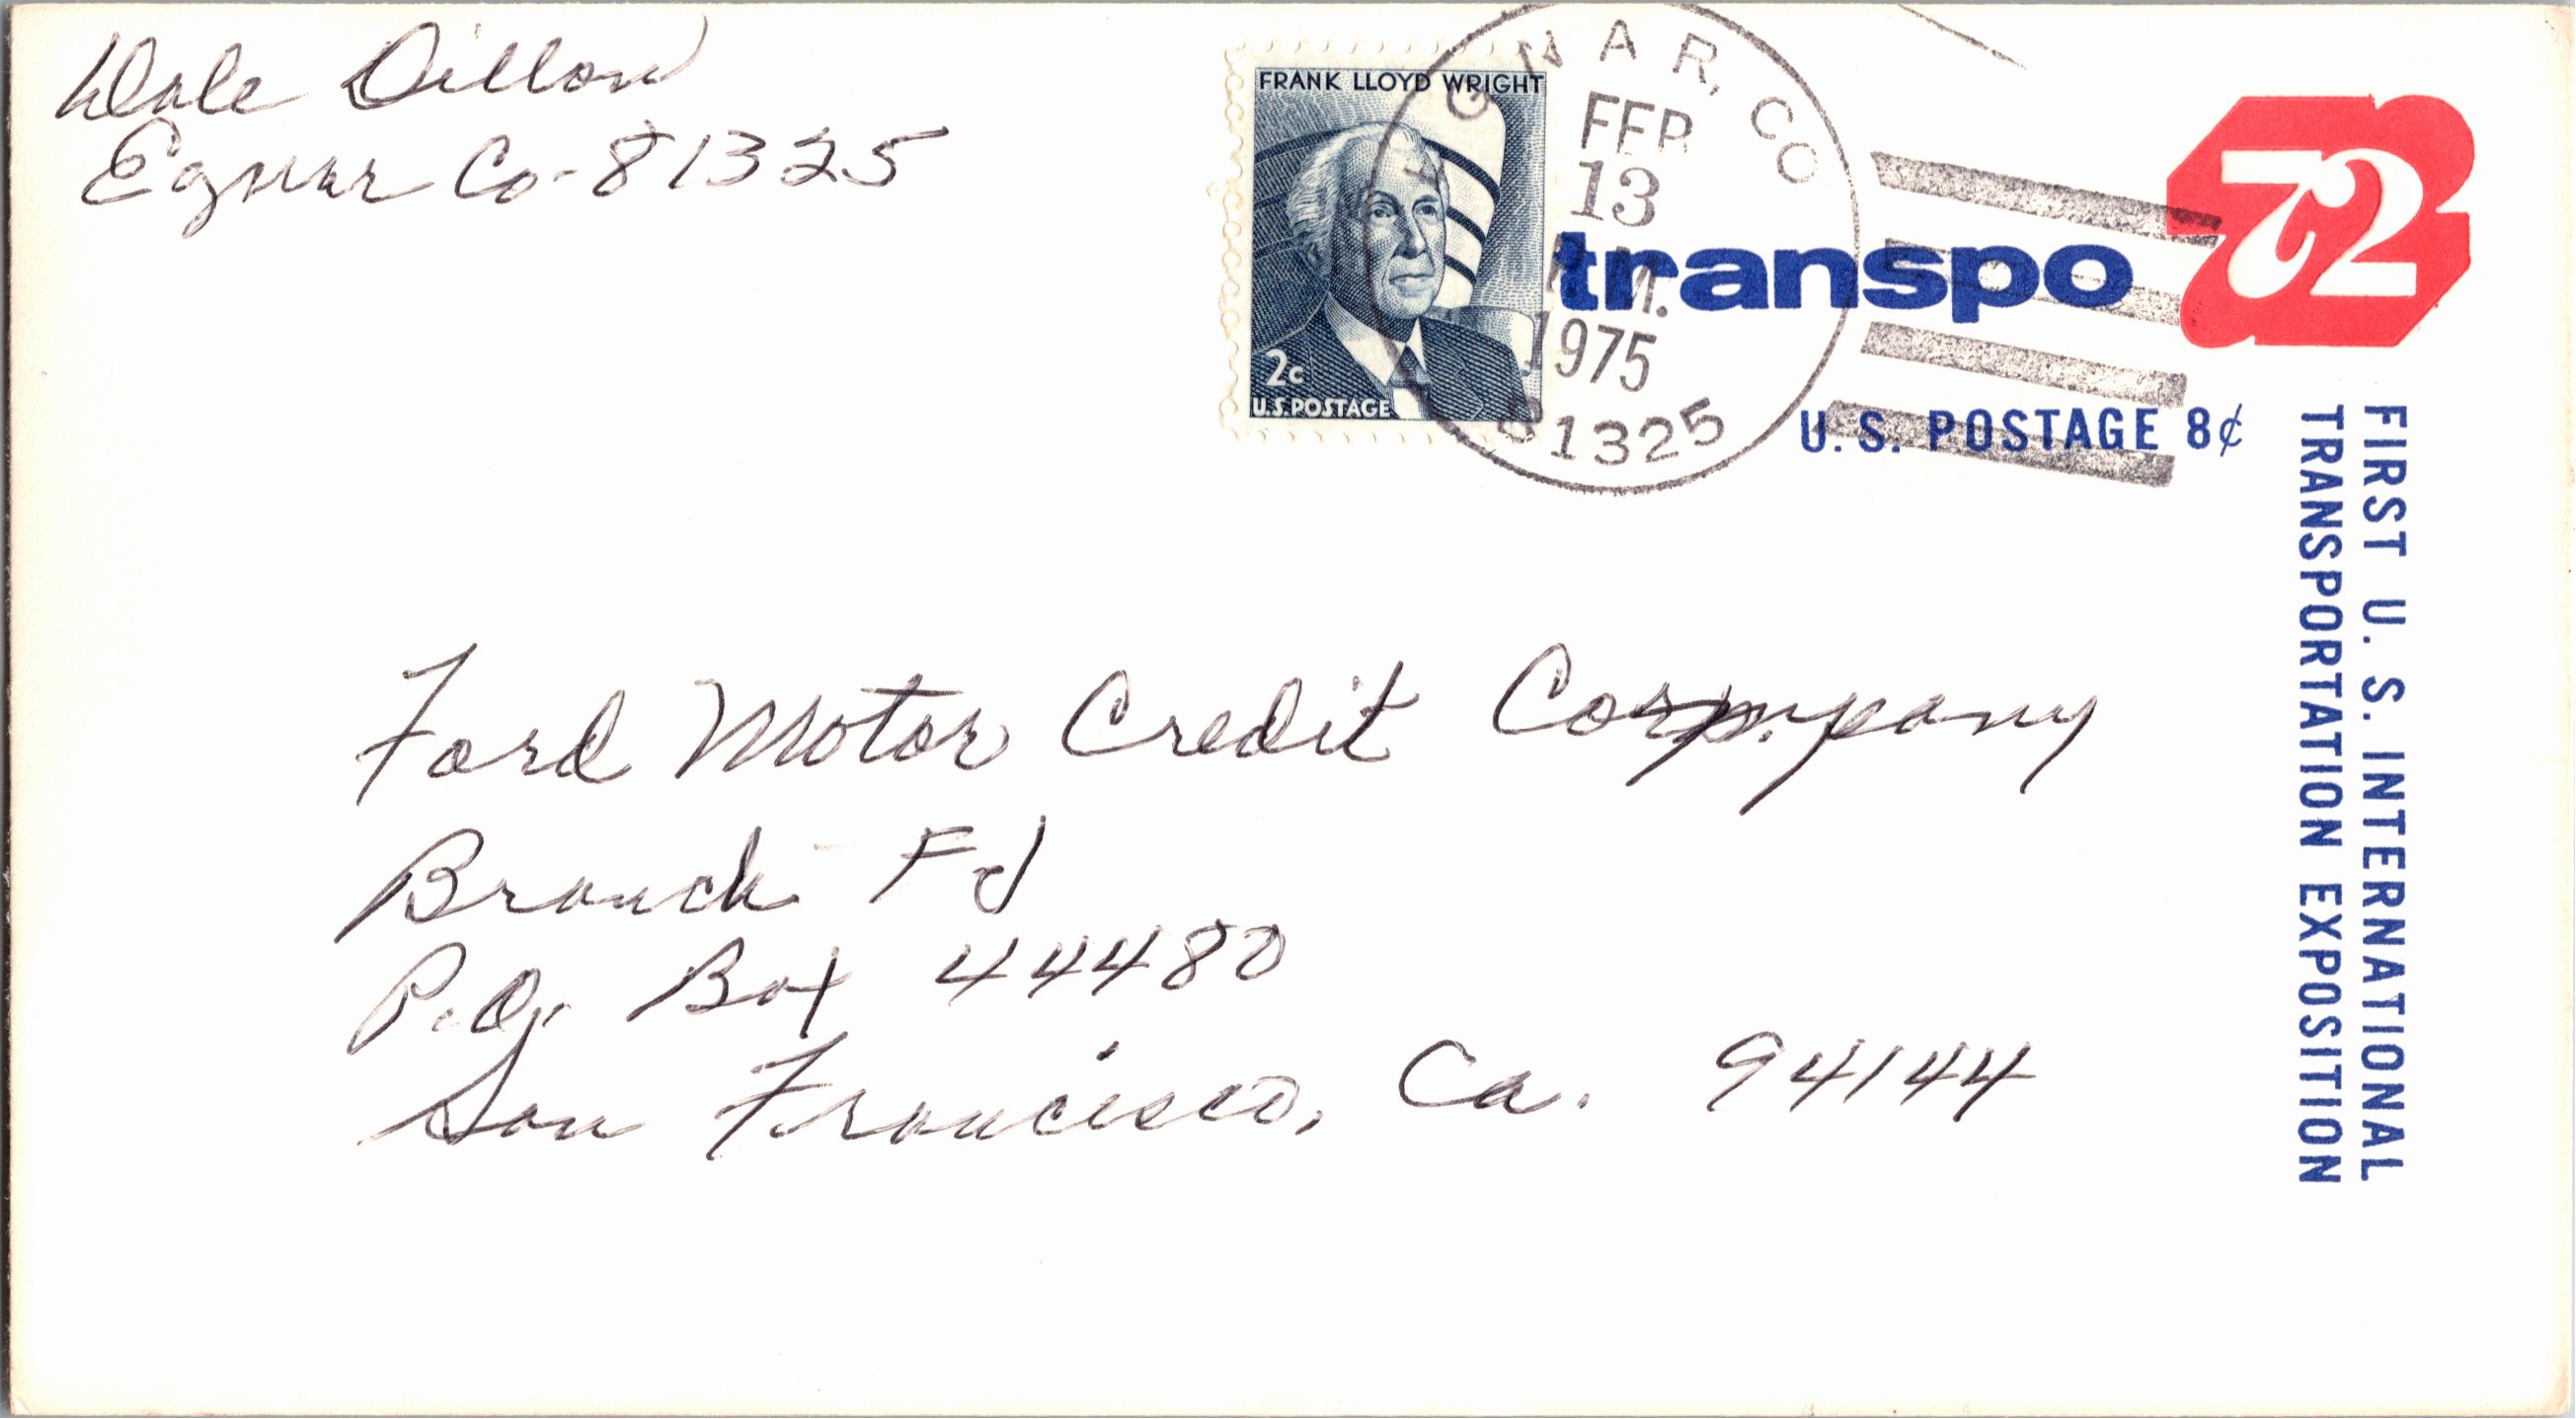 Dale Dillon
Egnar Co - 81325
FRANK LLOYD WRIGHT
2c
U.S. POSTAGE
EGNAR, CO
FEB
13
1975
81325
transpo 72
U. S. POSTAGE 8¢
FIRST U. S. INTERNATIONAL
TRANSPORTATION EXPOSITION
Ford Motor Credit Company
Branch Fd
P.O. Box 44480
San Francisco, Ca. 94144